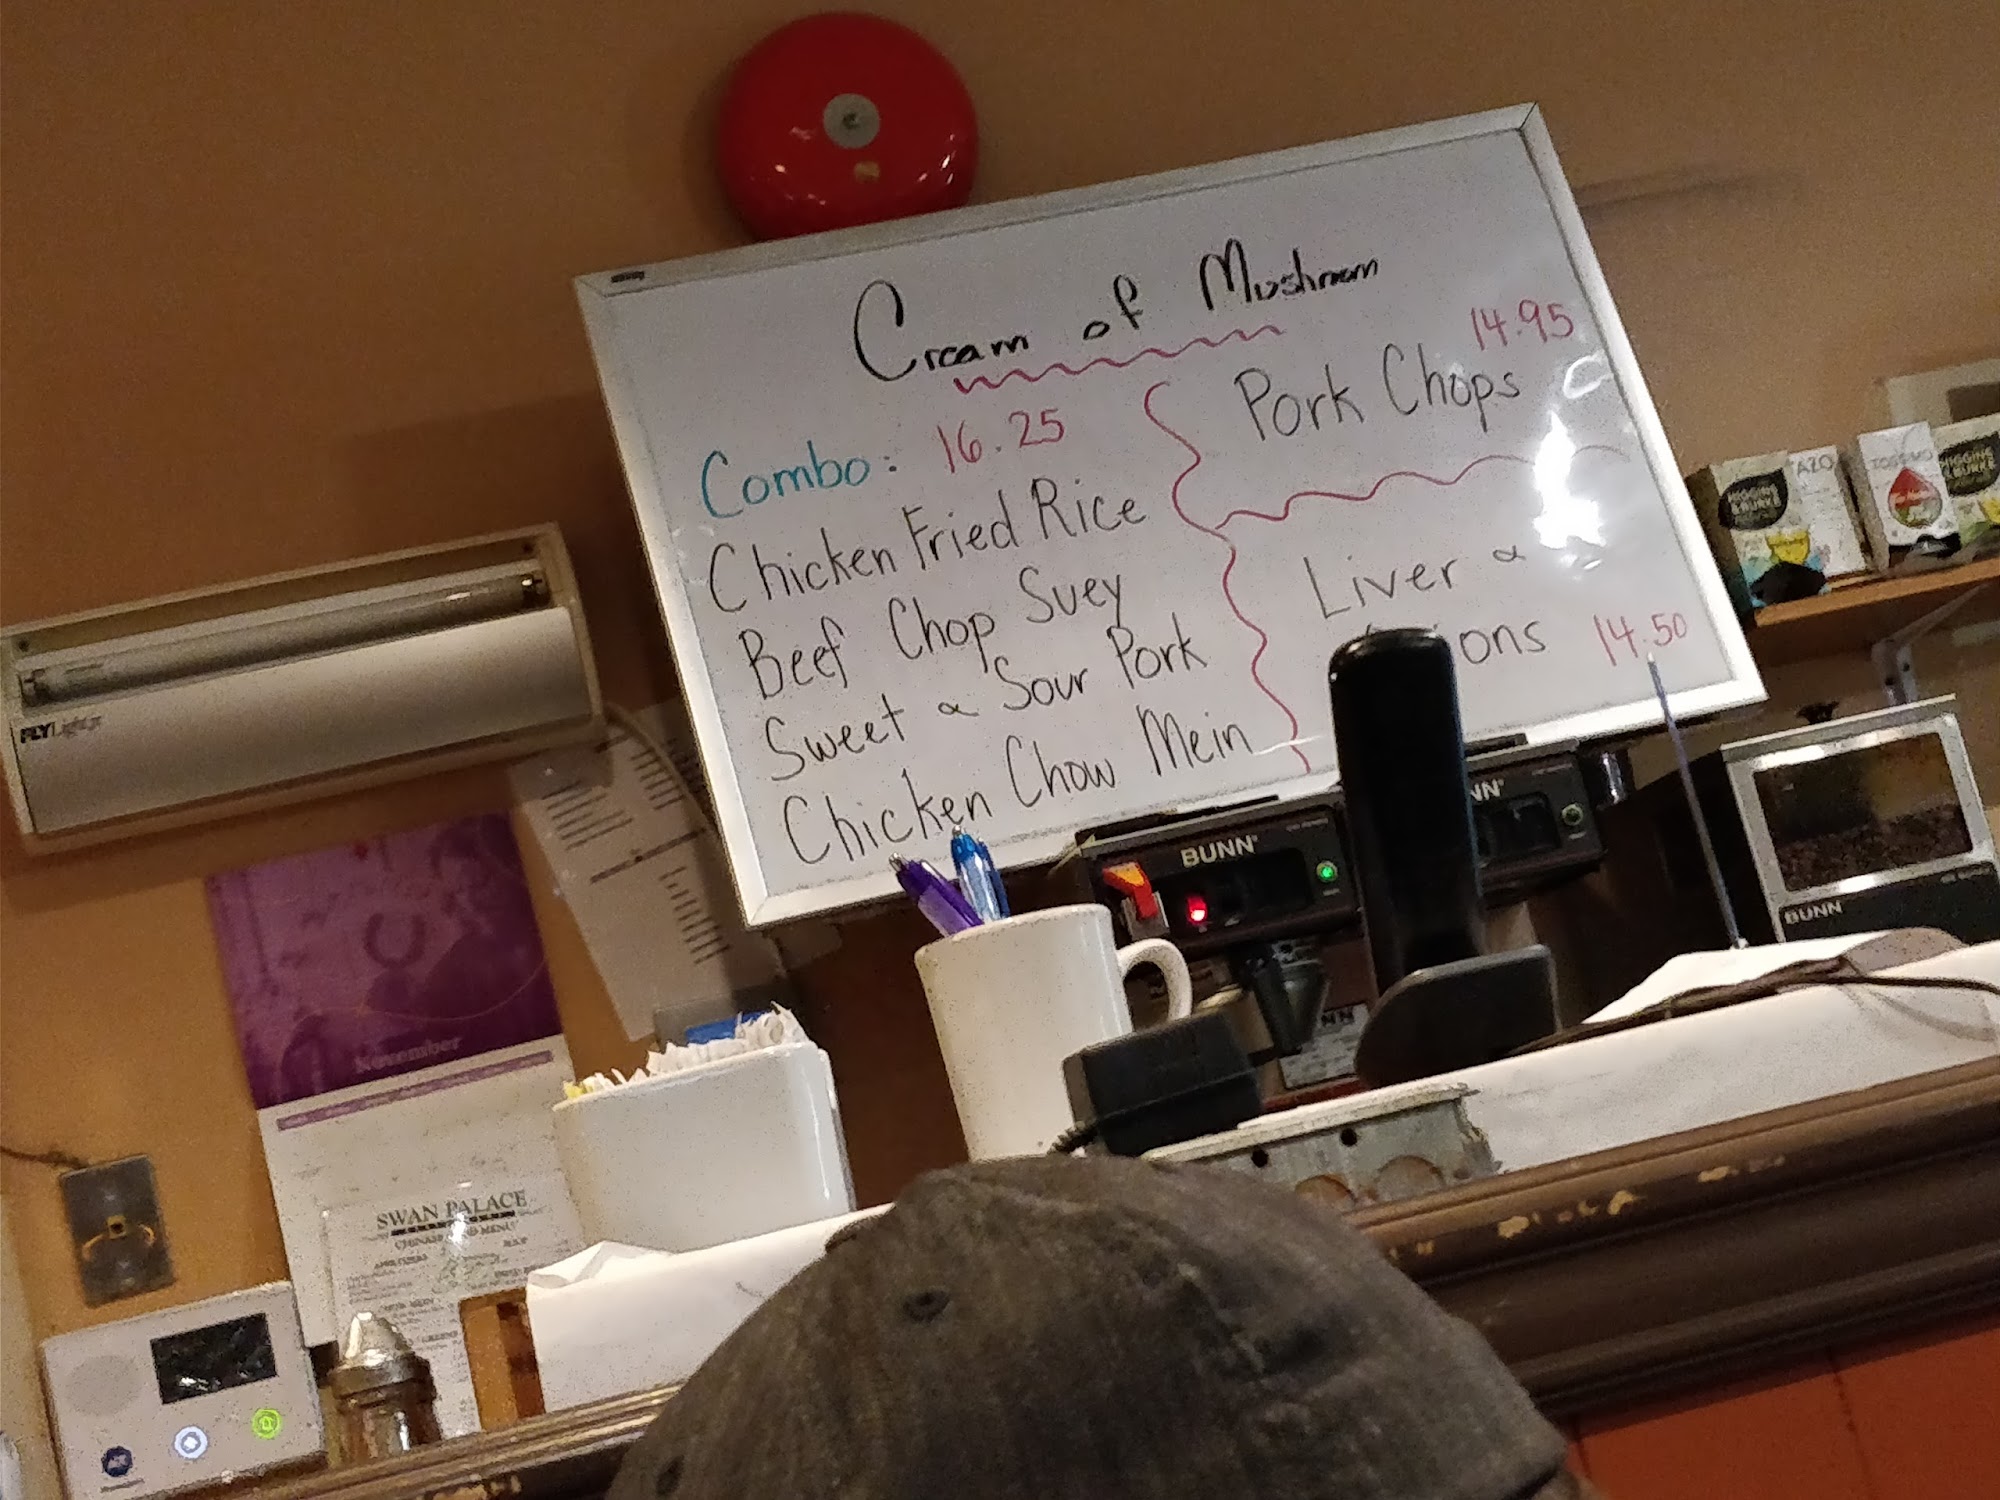 Cream of Mushroom
Combo: 16.25
Chicken Fried Rice
Beef Chop Suey
Sweet & Sour Pork
Chicken Chow Mein
14.95
Pork Chops
Liver &
ions 14.50
FLYLight
November
SWAN PALACE
BUNN
NN
BUNN
NN
TAZO
HIGGINS
& BURKE
TASSIMO
HIGGINS
& BURKE
ADT